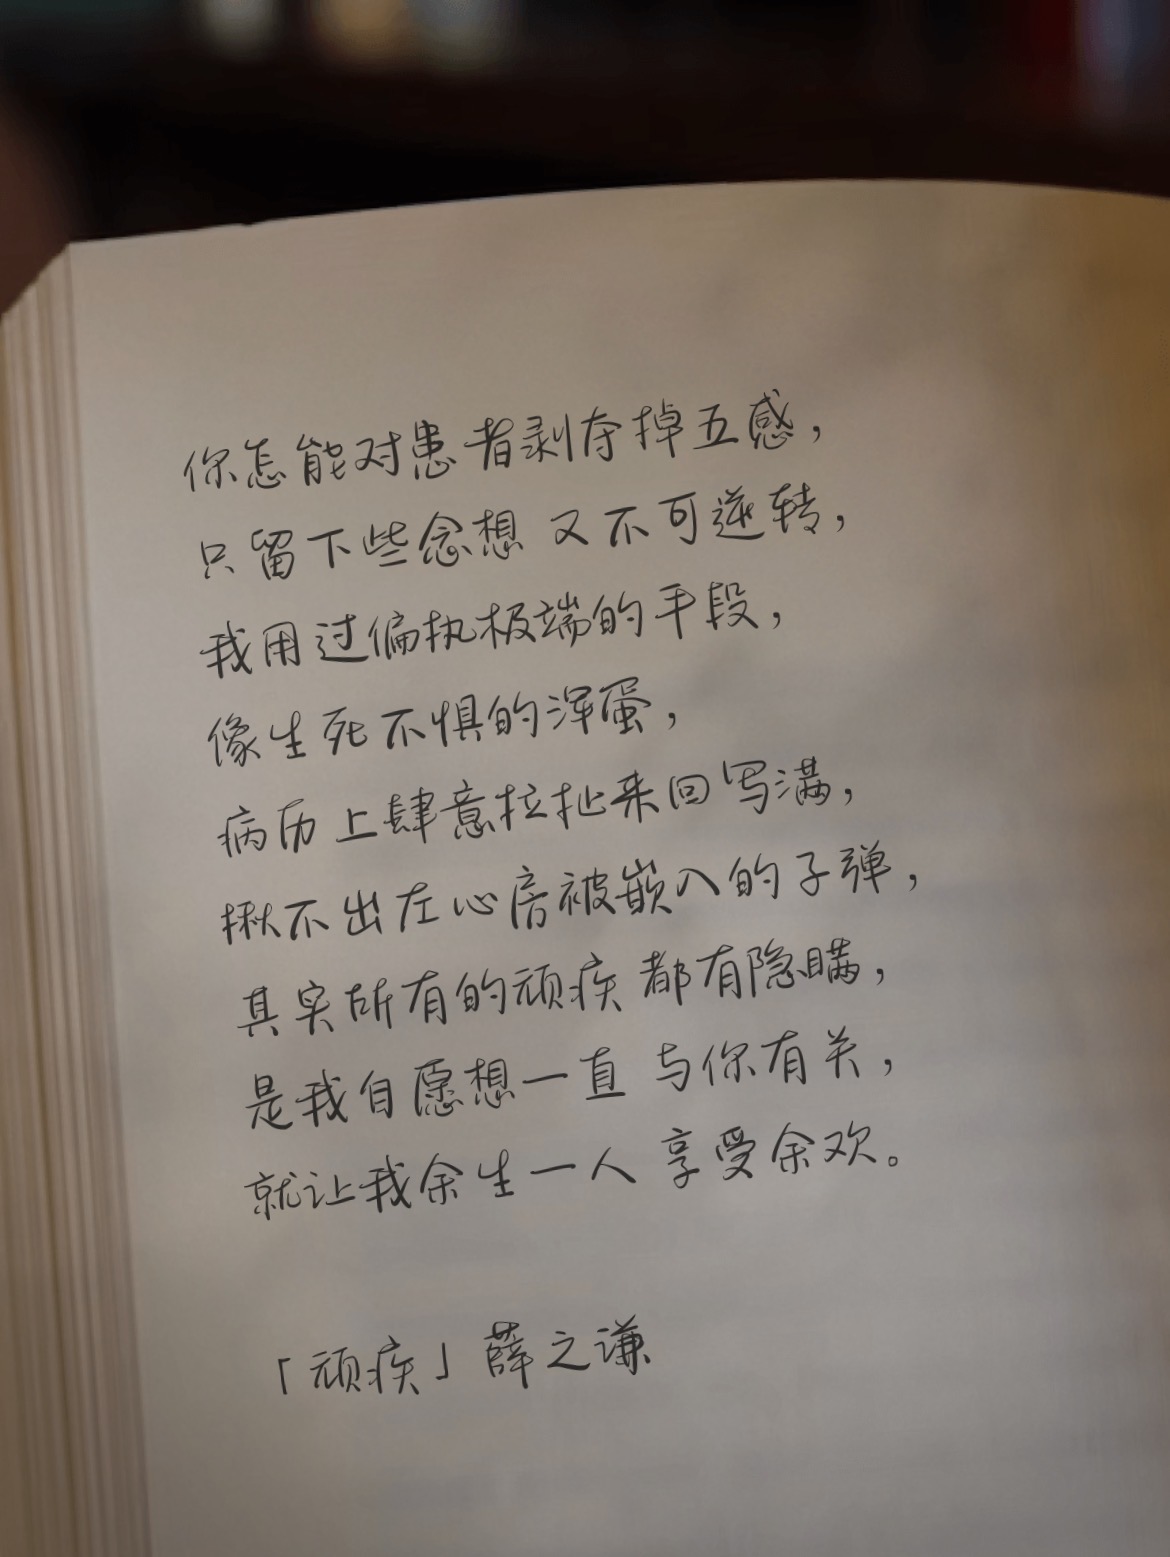 你怎能对患者剥夺掉五感，
只留下些念想 又不可逆转，
我用过偏执极端的手段，
像生死不惧的浑蛋，
病历上肆意拉扯来回写满，
揪不出左心房被嵌入的子弹，
其实所有的顽疾 都有隐瞒，
是我自愿想一直 与你有关，
就让我余生一人 享受余欢。
「顽疾」薛之谦